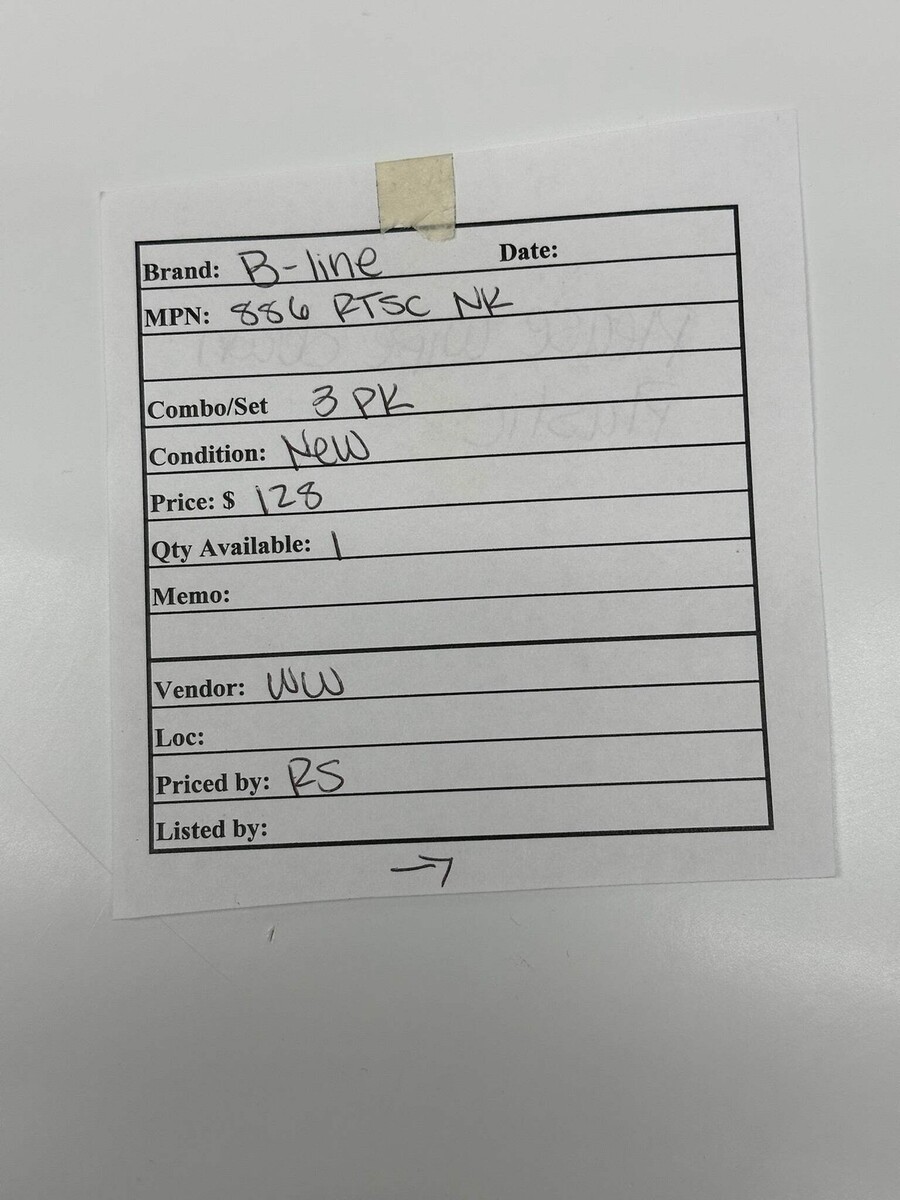 Brand: B-line Date:
MPN: 886 RTSC NK
Combo/Set 3 PK
Condition: New
Price: $ 128
Qty Available: 1
Memo:
Vendor: WW
Loc:
Priced by: RS
Listed by:
→